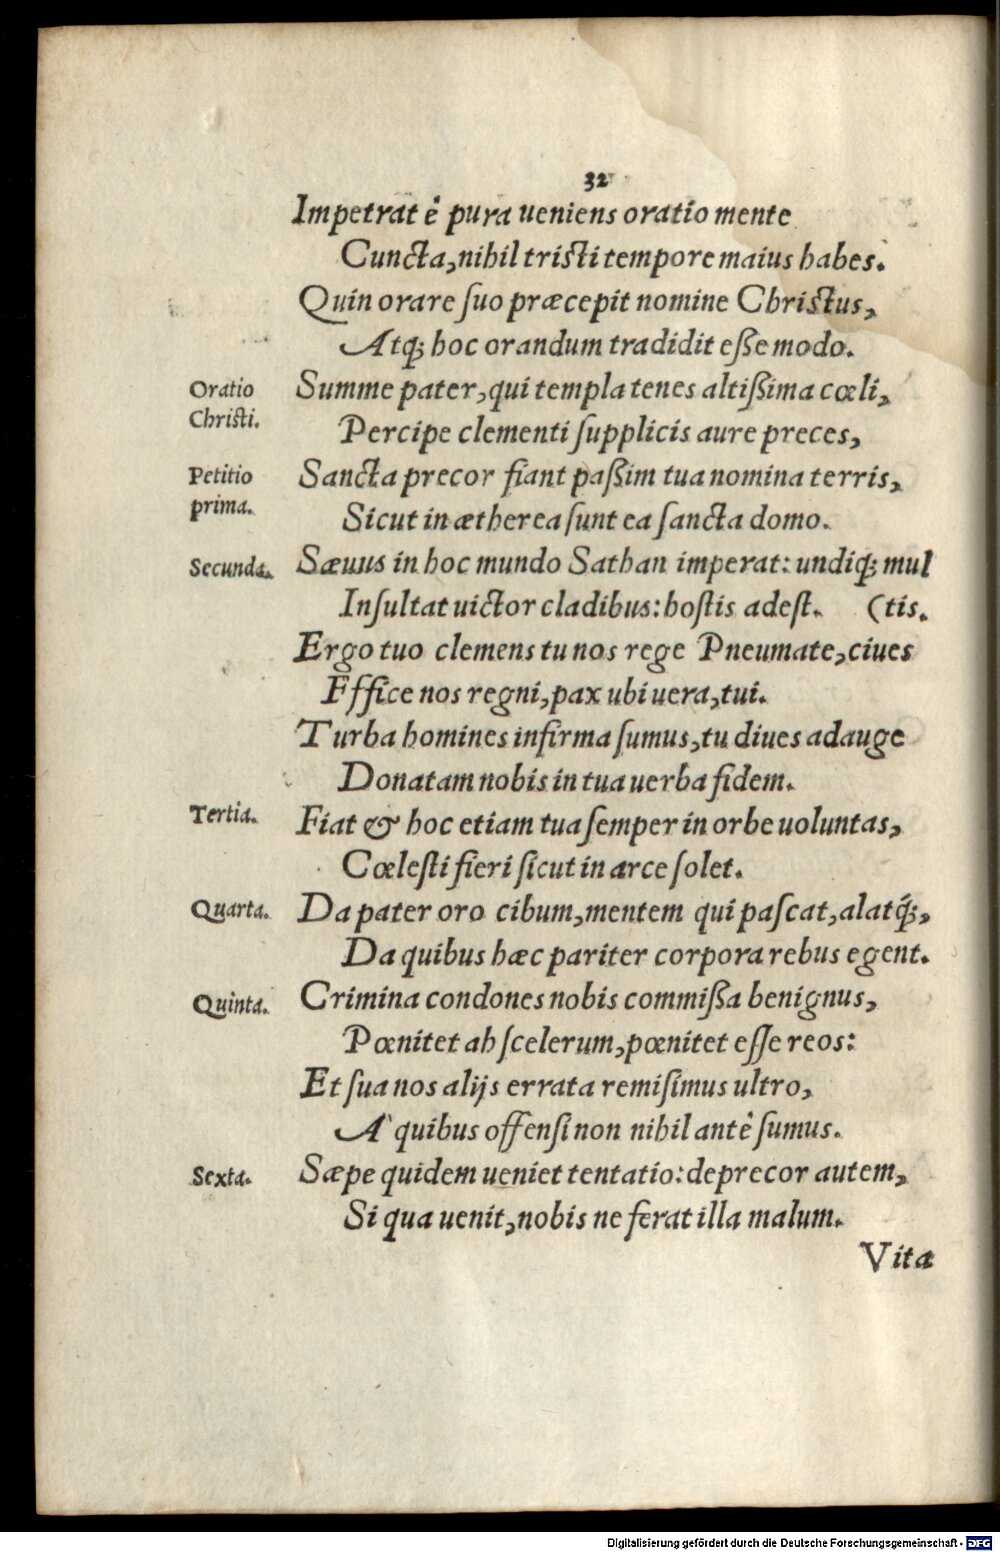 32
Impetrat è pura ueniens oratio mente
Cuncta, nihil tristi tempore maius habes.
Quin orare suo præcepit nomine Christus,
Atq; hoc orandum tradidit eße modo.
Oratio Christi.
Summe pater, qui templa tenes altißima cœli,
Percipe clementi supplicis aure preces,
Petitio prima.
Sancta precor fiant paßim tua nomina terris,
Sicut in ætherea sunt ea sancta domo.
Secunda.
Sæuus in hoc mundo Sathan imperat: undiq; mul
Insultat uictor cladibus: hostis adest. (tis.
Ergo tuo clemens tu nos rege Pneumate, ciues
Effice nos regni, pax ubi uera, tui.
Turba homines infirma sumus, tu diues adauge
Donatam nobis in tua uerba fidem.
Tertia.
Fiat & hoc etiam tua semper in orbe uoluntas,
Cœlesti fieri sicut in arce solet.
Quarta.
Da pater oro cibum, mentem qui pascat, alatq́;,
Da quibus hæc pariter corpora rebus egent.
Quinta.
Crimina condones nobis commißa benignus,
Pœnitet ah scelerum, pœnitet esse reos:
Et sua nos alijs errata remisimus ultro,
A` quibus offensi non nihil antè sumus.
Sexta.
Sæpe quidem ueniet tentatio: deprecor autem,
Si qua uenit, nobis ne ferat illa malum.
Vita
Digitalisierung gefördert durch die Deutsche Forschungsgemeinschaft - DFG